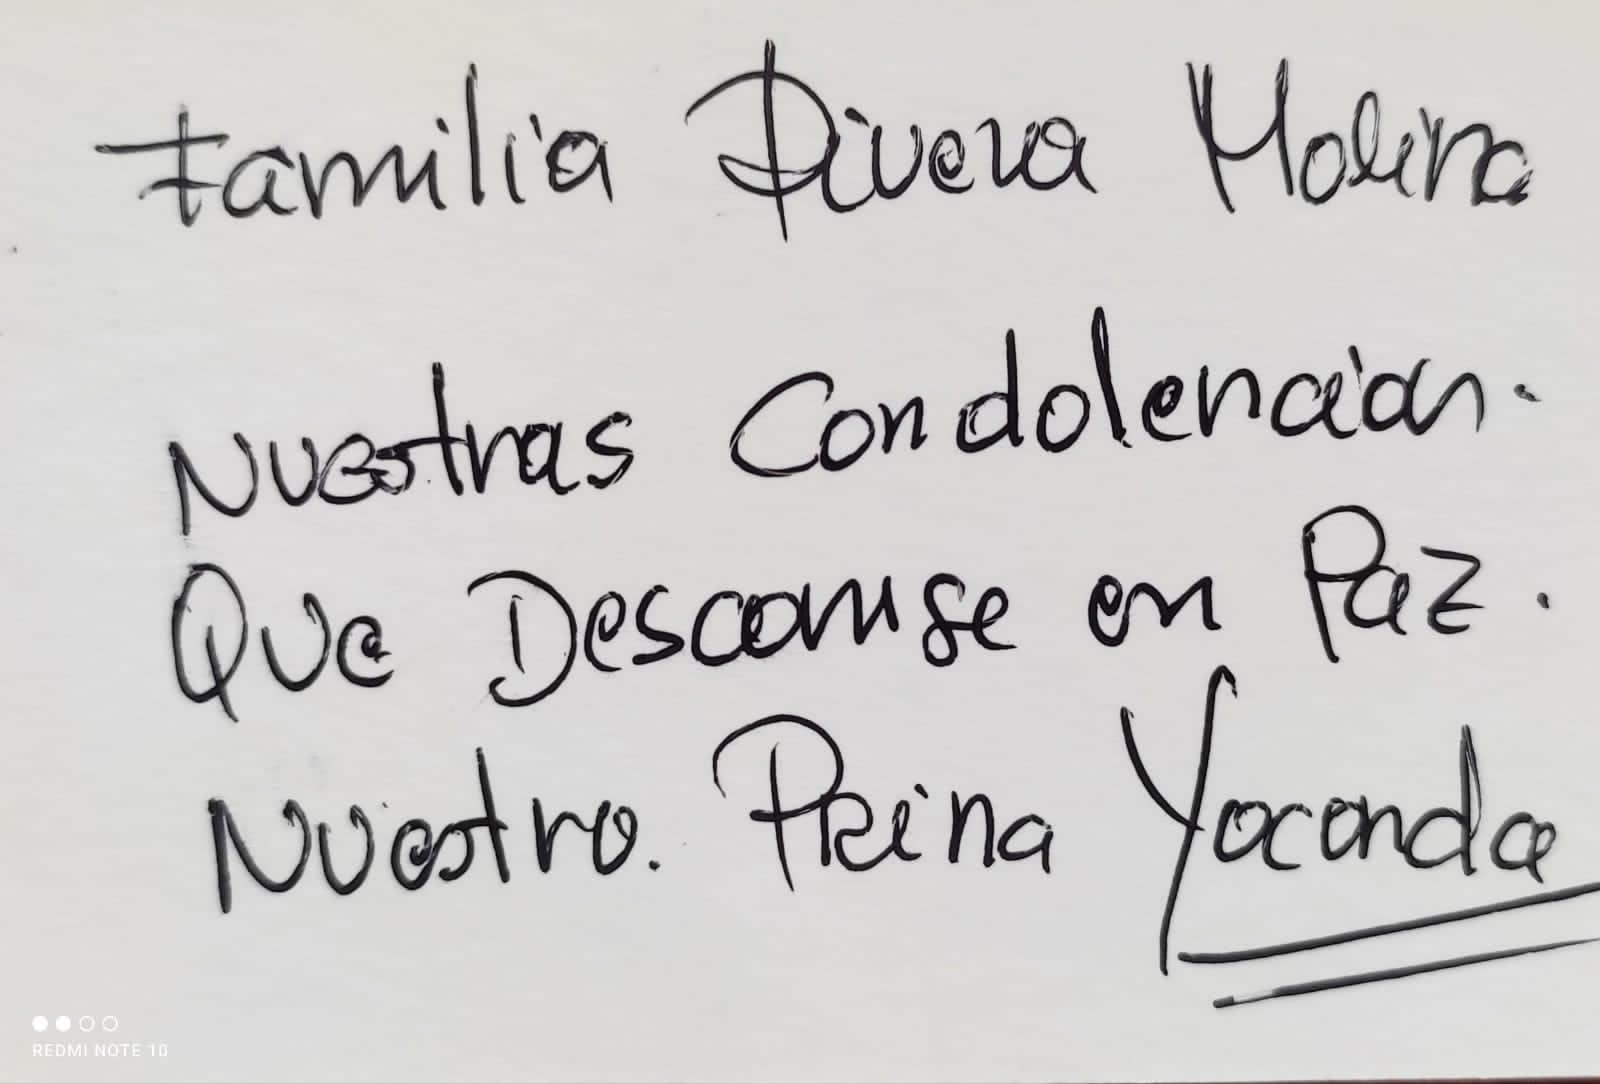 Familia Rivera Molina
Nuestras Condolencias.
Que Descanse en Paz.
Nuestra. Reina Yoconda
REDMI NOTE 10